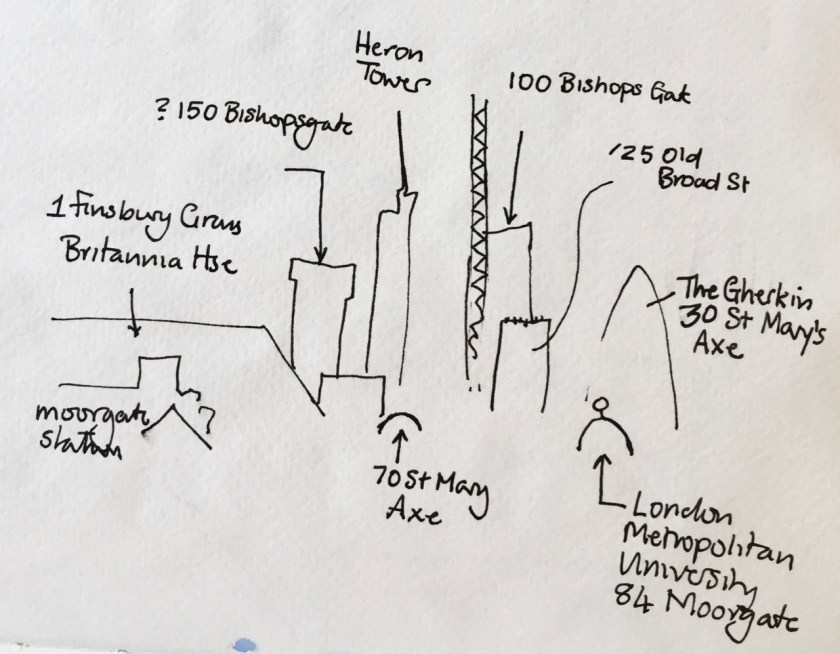 Heron
Tower
100 Bishops Gat
? 150 Bishopsgate
125 Old
Broad St
1 Finsbury Circus
Britannia Hse
The Gherkin
30 St Mary's
Axe
moorgate
station
?
70 St Mary
Axe
London
Metropolitan
University
84 Moorgate